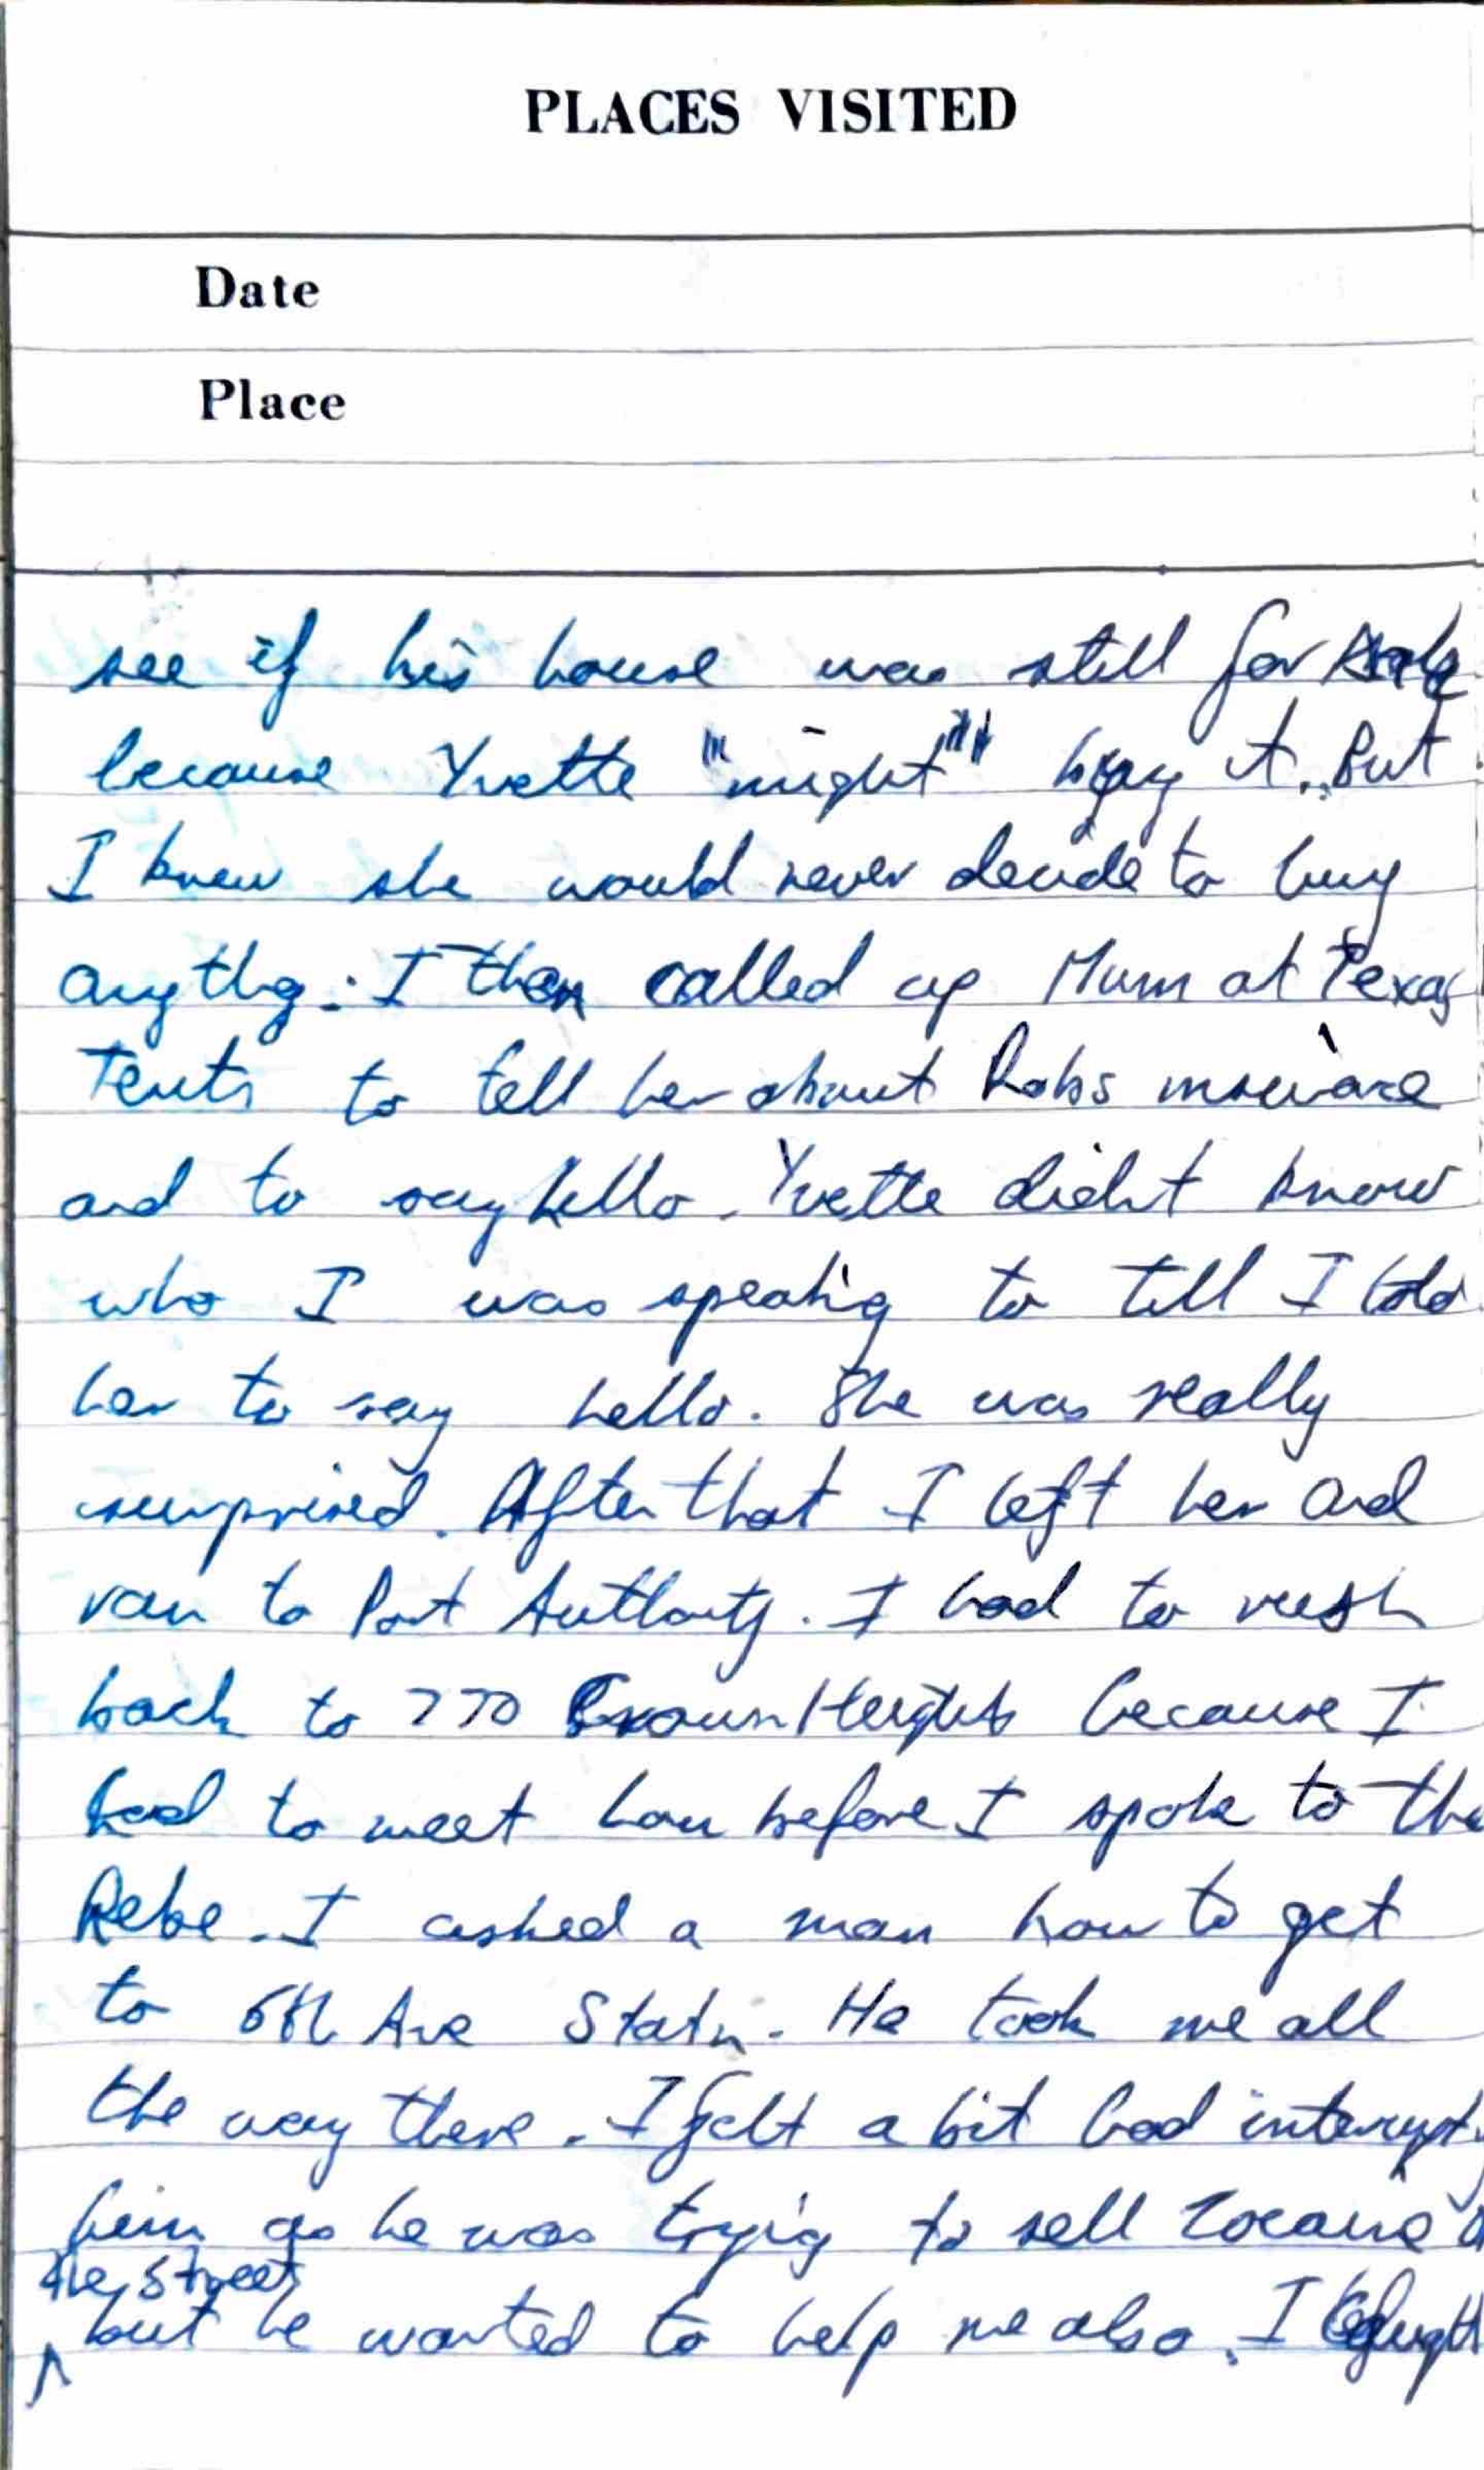 PLACES VISITED
Date
Place
see if his house was still for sale
because Yvette "might" buy it. But
I knew she would never decide to buy
anythg. I then called up Mum at Texas
Tents to tell her about Robs insurance
and to say hello. Yvette didn't know
who I was speakig to till I told
her to say hello. She was really
surprised. After that I left her and
ran to Port Authority. I had to rush
back to 770 Crown Heights because I
had to meet Lou before I spoke to the
Rebe. I asked a man how to get
to 6th Ave Statn. He took me all
the way there. I felt a bit bad interupt.
him as he was tryig to sell cocaine
the street
but he wanted to help me also. I